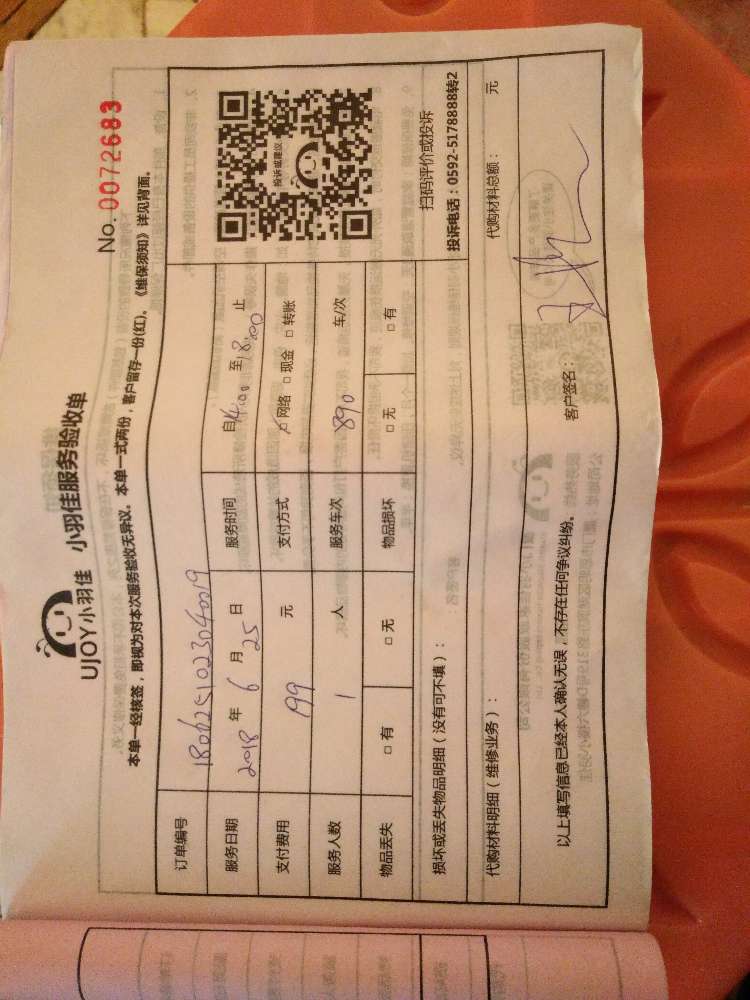 No. 0072683
UJOY小羽佳 小羽佳服务验收单
本单一经核签，即视为对本次服务验收无异议。本单一式两份，客户留存一份(红)。《维保须知》详见背面。
订单编号 18062510230400019
服务日期 2018 年 6 月 25 日 服务时间 自14:00 至18:00 止
支付费用 199 元 支付方式 ☑网络 □现金 □转账
服务人数 1 人 服务车次 890 车/次
物品丢失 □有 □无 物品损坏 □无 □有
投诉或建议
扫码评价或投诉
投诉电话：0592-5178888转2
损坏或丢失物品明细（没有可不填）：
代购材料明细（维修业务）： 代购材料总额： 元
以上填写信息已经本人确认无误，不存在任何争议纠纷。
客户签名：